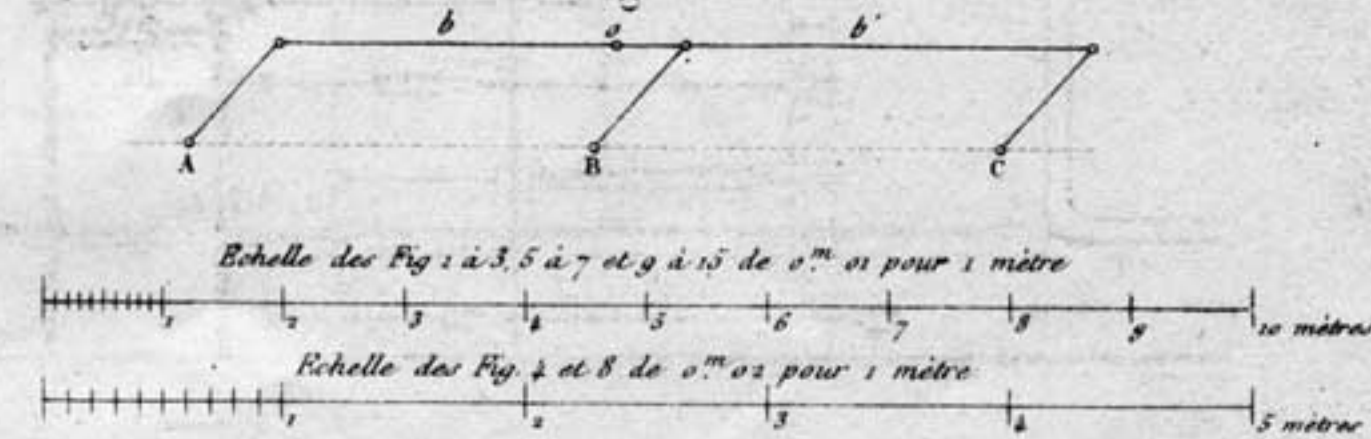 b o b'
A B C
Echelle des Fig 1 à 3, 5 à 7 et 9 à 15 de 0.m 01 pour 1 mètre
1 2 3 4 5 6 7 8 9 10 mètres
Echelle des Fig. 4 et 8 de 0.m 02 pour 1 mètre
1 2 3 4 5 mètres